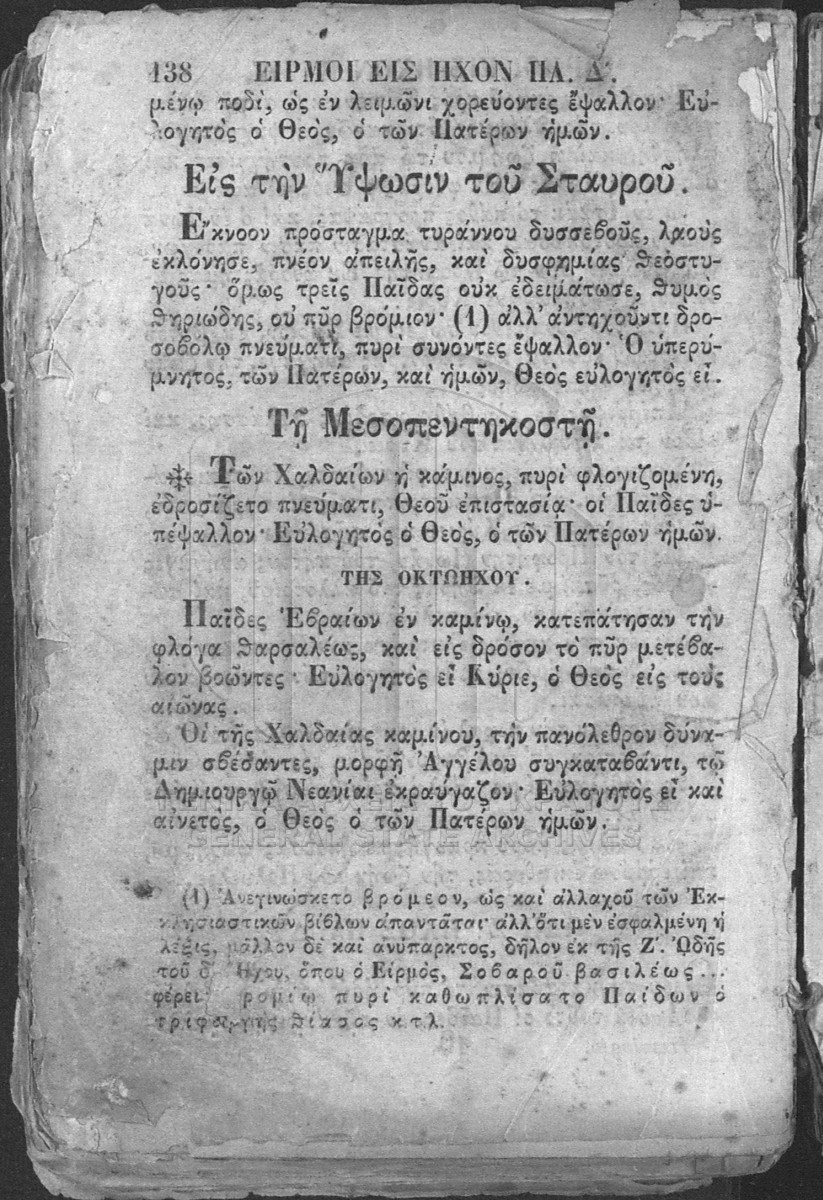 138 ΕΙΡΜΟΙ ΕΙΣ ΗΧΟΝ ΠΛ. Δ΄.
μένῳ ποδὶ, ὡς ἐν λειμῶνι χορεύοντες ἔψαλλον· Εὐ-
λογητὸς ὁ Θεὸς, ὁ τῶν Πατέρων ἡμῶν.
Εἰς τὴν Ὕψωσιν τοῦ Σταυροῦ.
Ἔκνοον πρόσταγμα τυράννου δυσσεβοῦς, λαοὺς
ἐκλόνησε, πνέον ἀπειλῆς, καὶ δυσφημίας θεοστυ-
γοῦς· ὅμως τρεῖς Παῖδας οὐκ ἐδειμάτωσε, θυμὸς
θηριώδης, οὐ πῦρ βρόμιον· (1) ἀλλ' ἀντηχοῦντι δρο-
σοβόλῳ πνεύματι, πυρὶ συνόντες ἔψαλλον· Ὁ ὑπερύ-
μνητος, τῶν Πατέρων, καὶ ἡμῶν, Θεὸς εὐλογητὸς εἶ.
Τῇ Μεσοπεντηκοστῇ.
Τῶν Χαλδαίων ἡ κάμινος, πυρὶ φλογιζομένη,
ἐδροσίζετο πνεύματι, Θεοῦ ἐπιστασίᾳ· οἱ Παῖδες ὑ-
πέψαλλον· Εὐλογητὸς ὁ Θεὸς, ὁ τῶν Πατέρων ἡμῶν.
ΤΗΣ ΟΚΤΩΗΧΟΥ.
Παῖδες Ἑβραίων ἐν καμίνῳ, κατεπάτησαν τὴν
φλόγα θαρσαλέως, καὶ εἰς δρόσον τὸ πῦρ μετέβα-
λον βοῶντες· Εὐλογητὸς εἶ Κύριε, ὁ Θεὸς εἰς τοὺς
αἰῶνας.
Οἱ τῆς Χαλδαίας καμίνου, τὴν πανόλεθρον δύνα-
μιν σβέσαντες, μορφῇ Ἀγγέλου συγκαταβάντι, τῷ
Δημιουργῷ Νεανίαι ἐκραύγαζον· Εὐλογητὸς εἶ καὶ
αἰνετὸς, ὁ Θεὸς ὁ τῶν Πατέρων ἡμῶν.
GENERAL STATE ARCHIVES
(1) Ἀνεγινώσκετο βρόμεον, ὡς καὶ ἀλλαχοῦ τῶν Ἐκ-
κλησιαστικῶν βίβλων ἀπαντᾶται· ἀλλ' ὅτι μὲν ἐσφαλμένη ἡ
λέξις, μᾶλλον δὲ καὶ ἀνύπαρκτος, δῆλον ἐκ τῆς Ζ΄. ᾨδῆς
τοῦ Ἤχου, ὅπου ὁ Εἱρμὸς, Σοβαροῦ βασιλέως...
φέρει πυρὶ καθωπλίσατο Παίδων ὁ
θίασος κ.τ.λ.